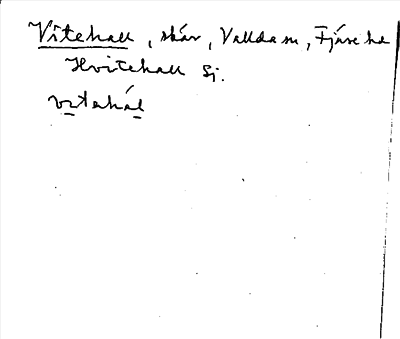 Vitehall, skär, Vallda sn, Fjäre hd
Hvitehall Sj.
vitahál